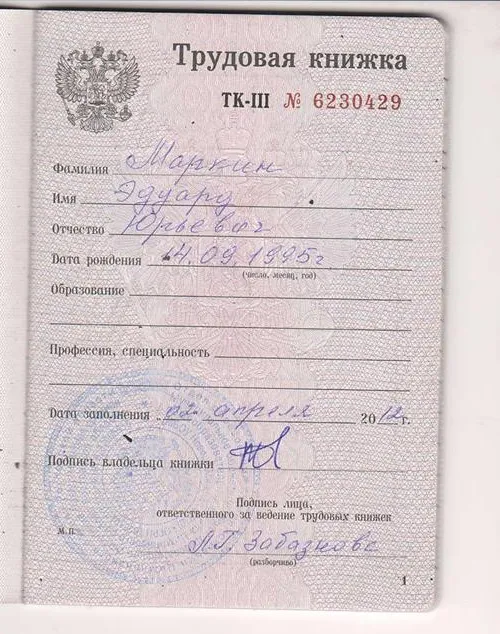 Трудовая книжка
ТК-III № 6230429
Фамилия Маркин
Имя Эдуард
Отчество Юрьевич
Дата рождения 14.09.1995г
(число, месяц, год)
Образование
Профессия, специальность
Дата заполнения "02" апреля 2012г.
Подпись владельца книжки
Подпись лица,
ответственного за ведение трудовых книжек
М.П.
Л.Г. Забазнова
(разборчиво)
1